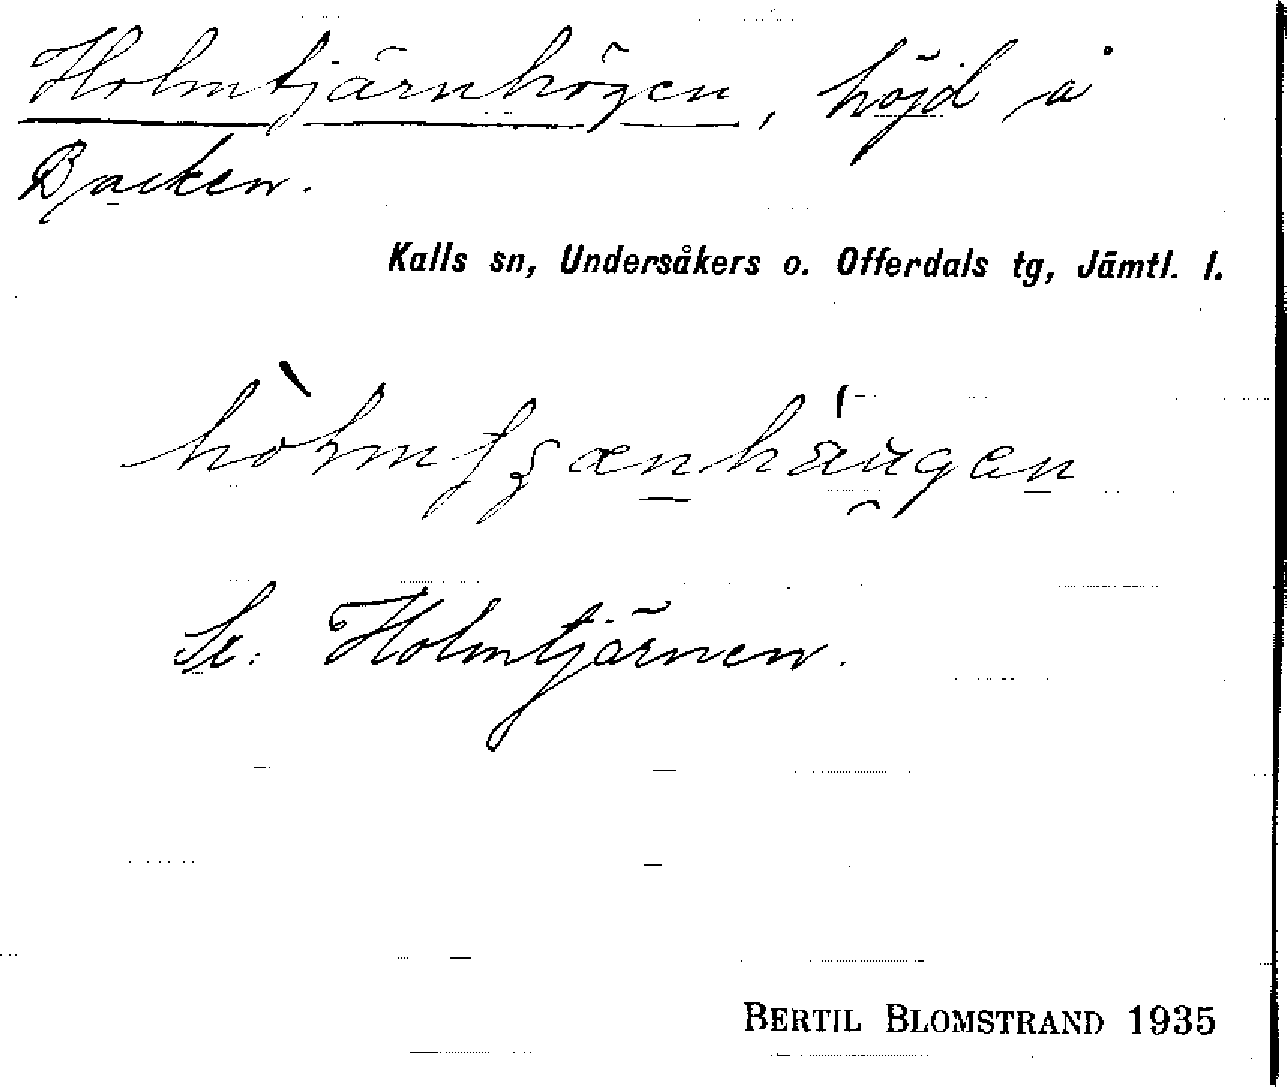 Holmtjärnhögen, höjd å
Backen.
Kalls sn, Undersåkers o. Offerdals tg, Jämtl. l.
Se: Holmtjärnen.
BERTIL BLOMSTRAND 1935